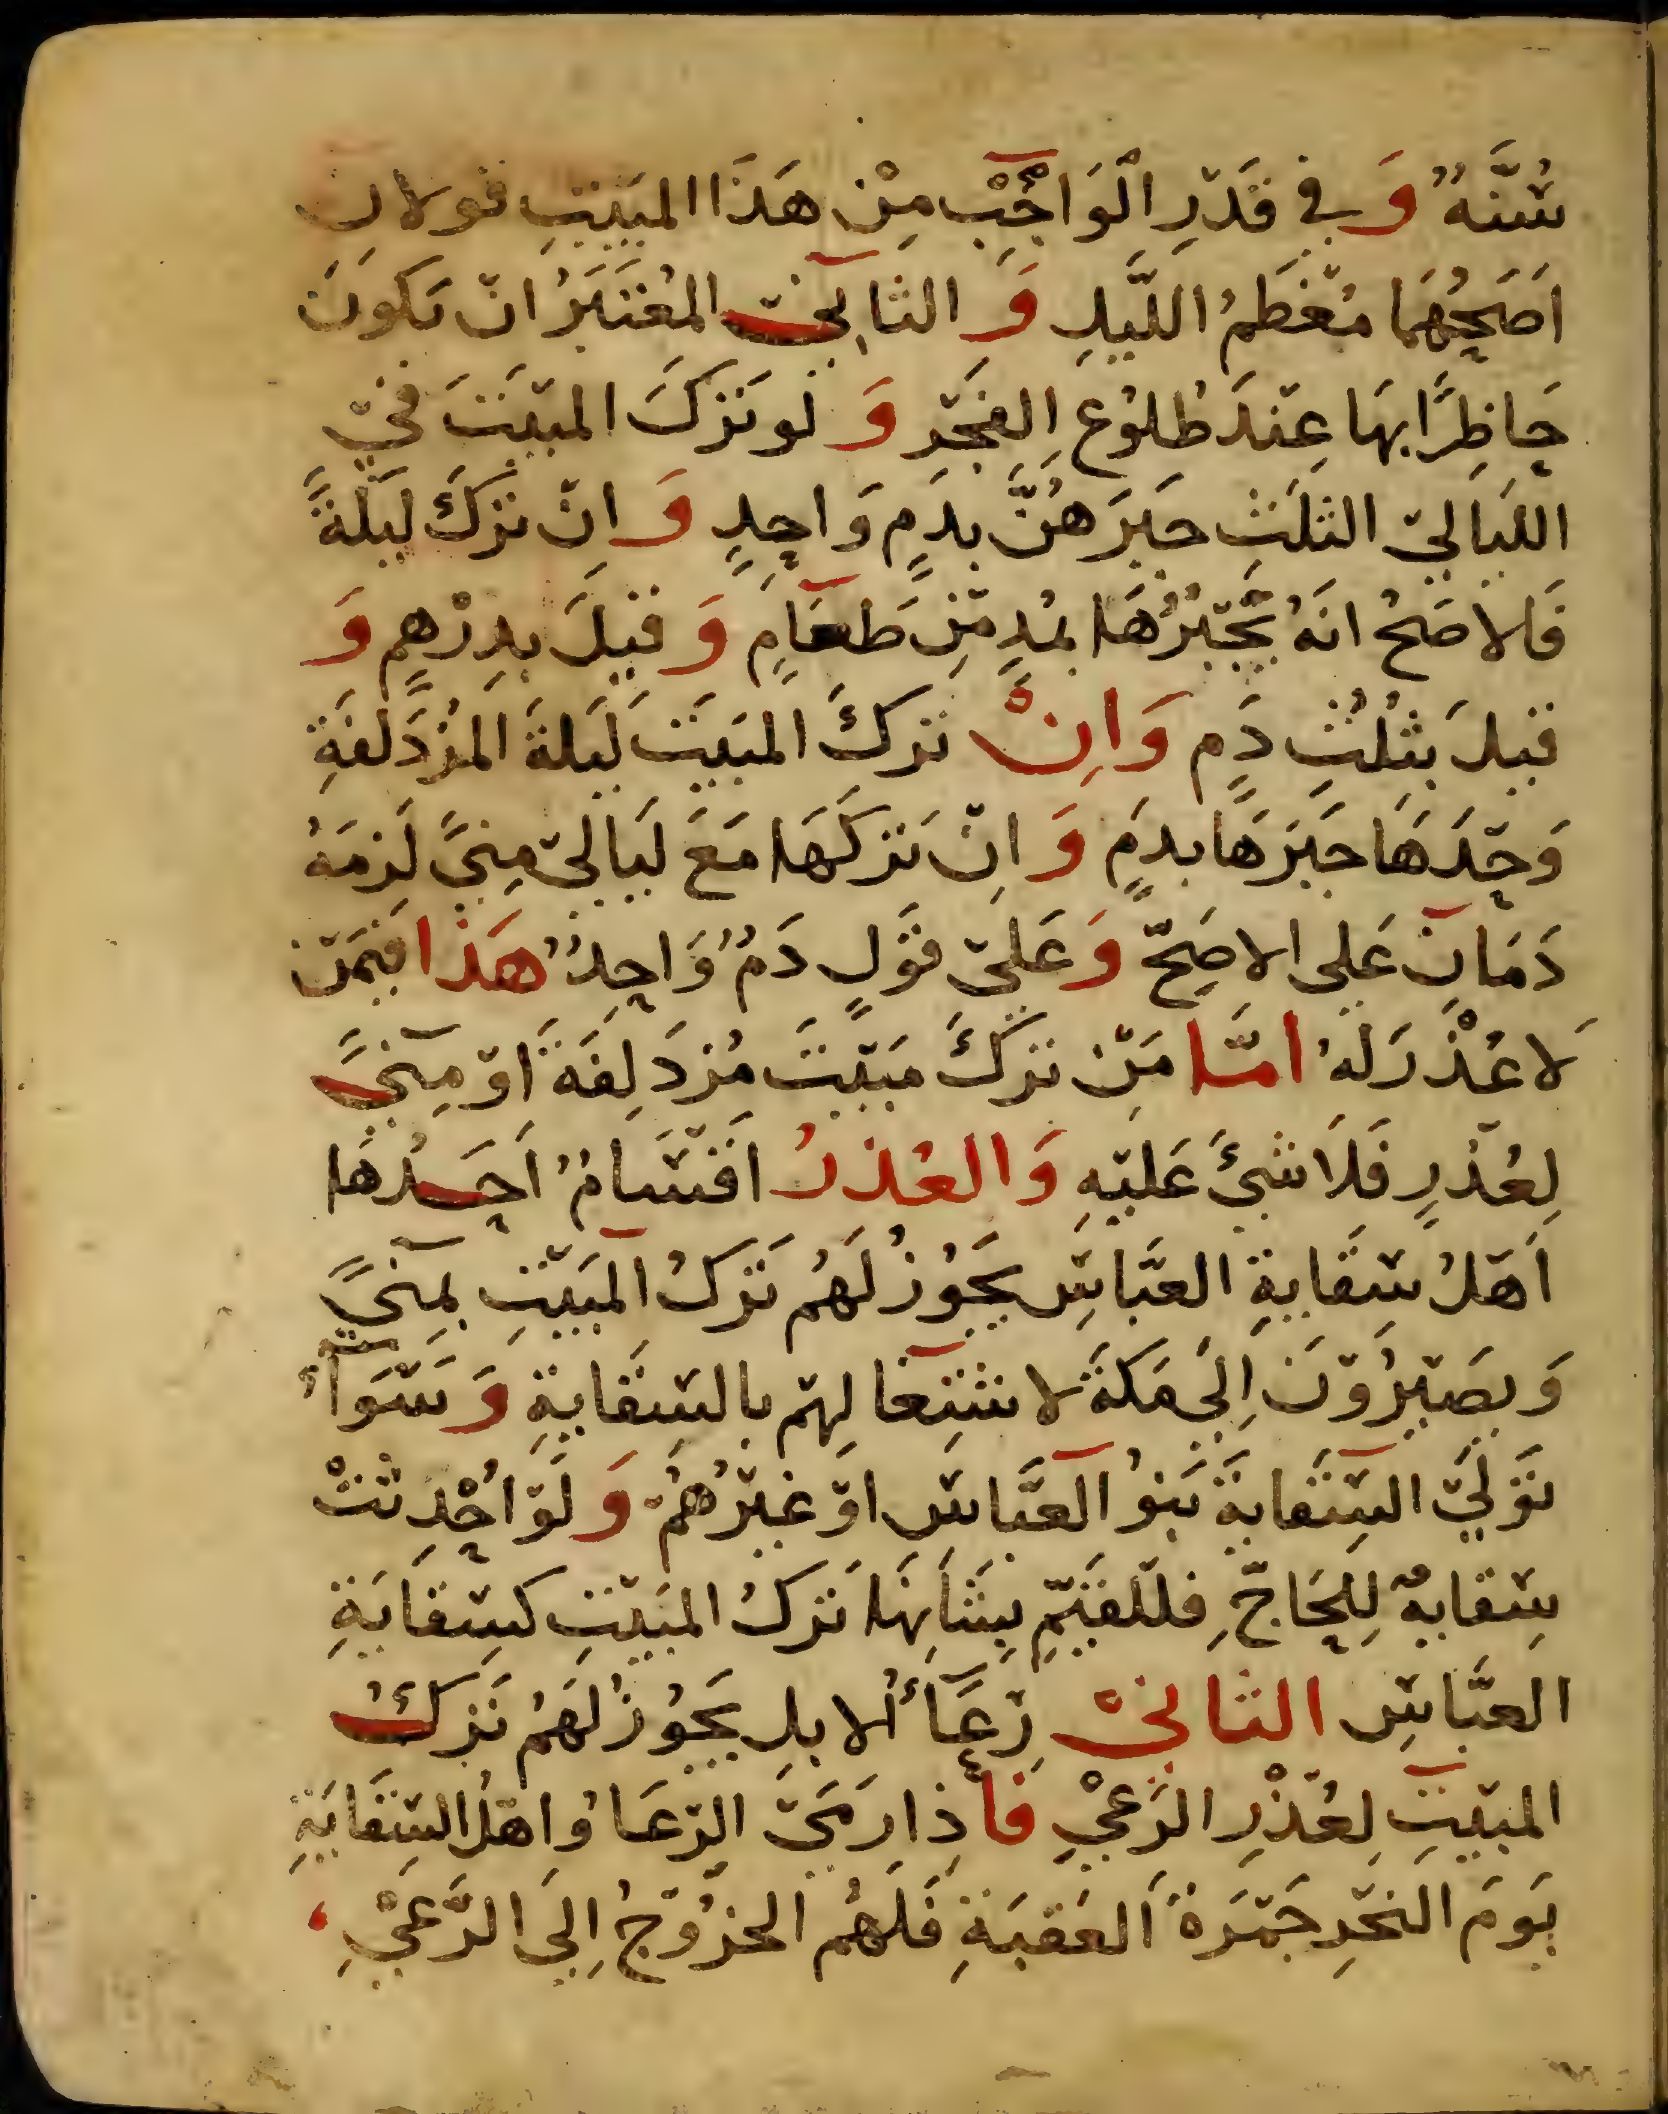 سُنَّةٌ وَفي قَدْرِ الْوَاجِبِ مِنْ هَذَا المَبِيتِ قولانِ
اَصَحُّهُمَا مُعْظَمُ اللَّيْلِ وَ الثانِيْ المُعْتَبَرُ انْ يَكونَ
حَاظِرًا بهَا عِنْدَ طُلُوْعِ الفَجْرِ وَ لو تَرَكَ المَبِيْتَ فيْ
اللَيَاليْ الثلَثِ جَبَرَهُنَّ بدَمٍ وَاحِدٍ وَ اِنْ تَرَكَ لَيْلَةً
فَالاصَحُ انَهُ يَجْبُرُهَا بمُدٍ مِّنْ طَعَامٍ وَ قيْلَ بدِرْهمٍ وَ
قيلَ بثُلُثِ دَمٍ وَاِنْ تَرَكَ المَبيَتَ لَيَلةَ المُزْدَلفَةِ
وَحْدَهَا جَبَرَهَا بدَمٍ وَ اِنْ تَرَكَهَا مَعَ لَيَاليْ مِنىً لَزمَهُ
دَمَانِ عَلى الاصَحّ وَ عَليْ قَوْلٍ دَمٌ وَاحِدٌ هَذا فيْمَنْ
لَا عُذْرَ لهُ امَّا مَنْ تَرَكَ مَبيْتَ مُزدَلِفَةَ اَوْ مِنىً
لِعُذْرٍ فَلَا شَيْءَ عَليْهِ وَالعُذرُ اَقْسَامٌ اَحَدُهَا
اَهْلُ سِقَايةِ العَبَّاسِ يَجُوْزُ لَهُمْ تَرَكُ المَبِيْتِ بمِنىً
وَ يَصِيْرُوْنَ اِلىَ مَكةَ لاشْتِغَالِهمْ بالسِقَايةِ وَ سَوَآءٌ
تَوَلَيْ السِقَايةَ بَنوُ العَبَّاسِ اوْ غيْرُهُمْ وَ لَوْ اُحْدِثتْ
سِقَايةٌ لِلحَاجِّ فلِلْمُقيْمِ بِشَانهَا تَرَكُ المَبيْتِ كسِقَايَةِ
العَبَّاسِ الثانيْ رِعَآءُ الابلِ يَجُوْزُ لَهُمْ تَرَكُ
المَبيْتِ لِعُذْرِ الرَعْيِ فَاِذا رَمَيْ الرِّعَاءُ وَاهْلُ السِقَايَةِ
يَوْمَ النَحْرِ جَمْرَةَ العَقبَةِ فَلَهُمْ الخرُوْجُ اِلىَ الرَّعْيِ،